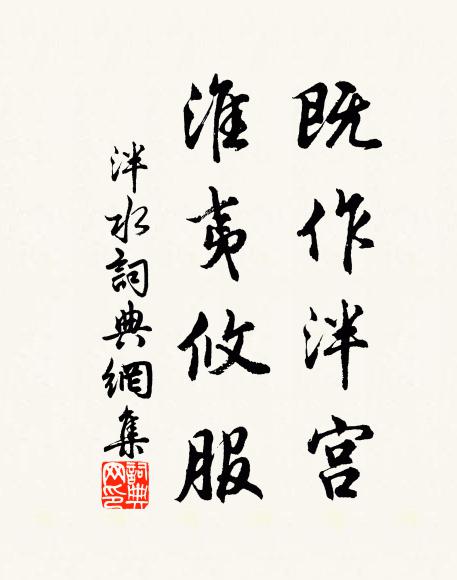 既作泮宫
淮夷攸服
泮水詞典網集
詞典网印